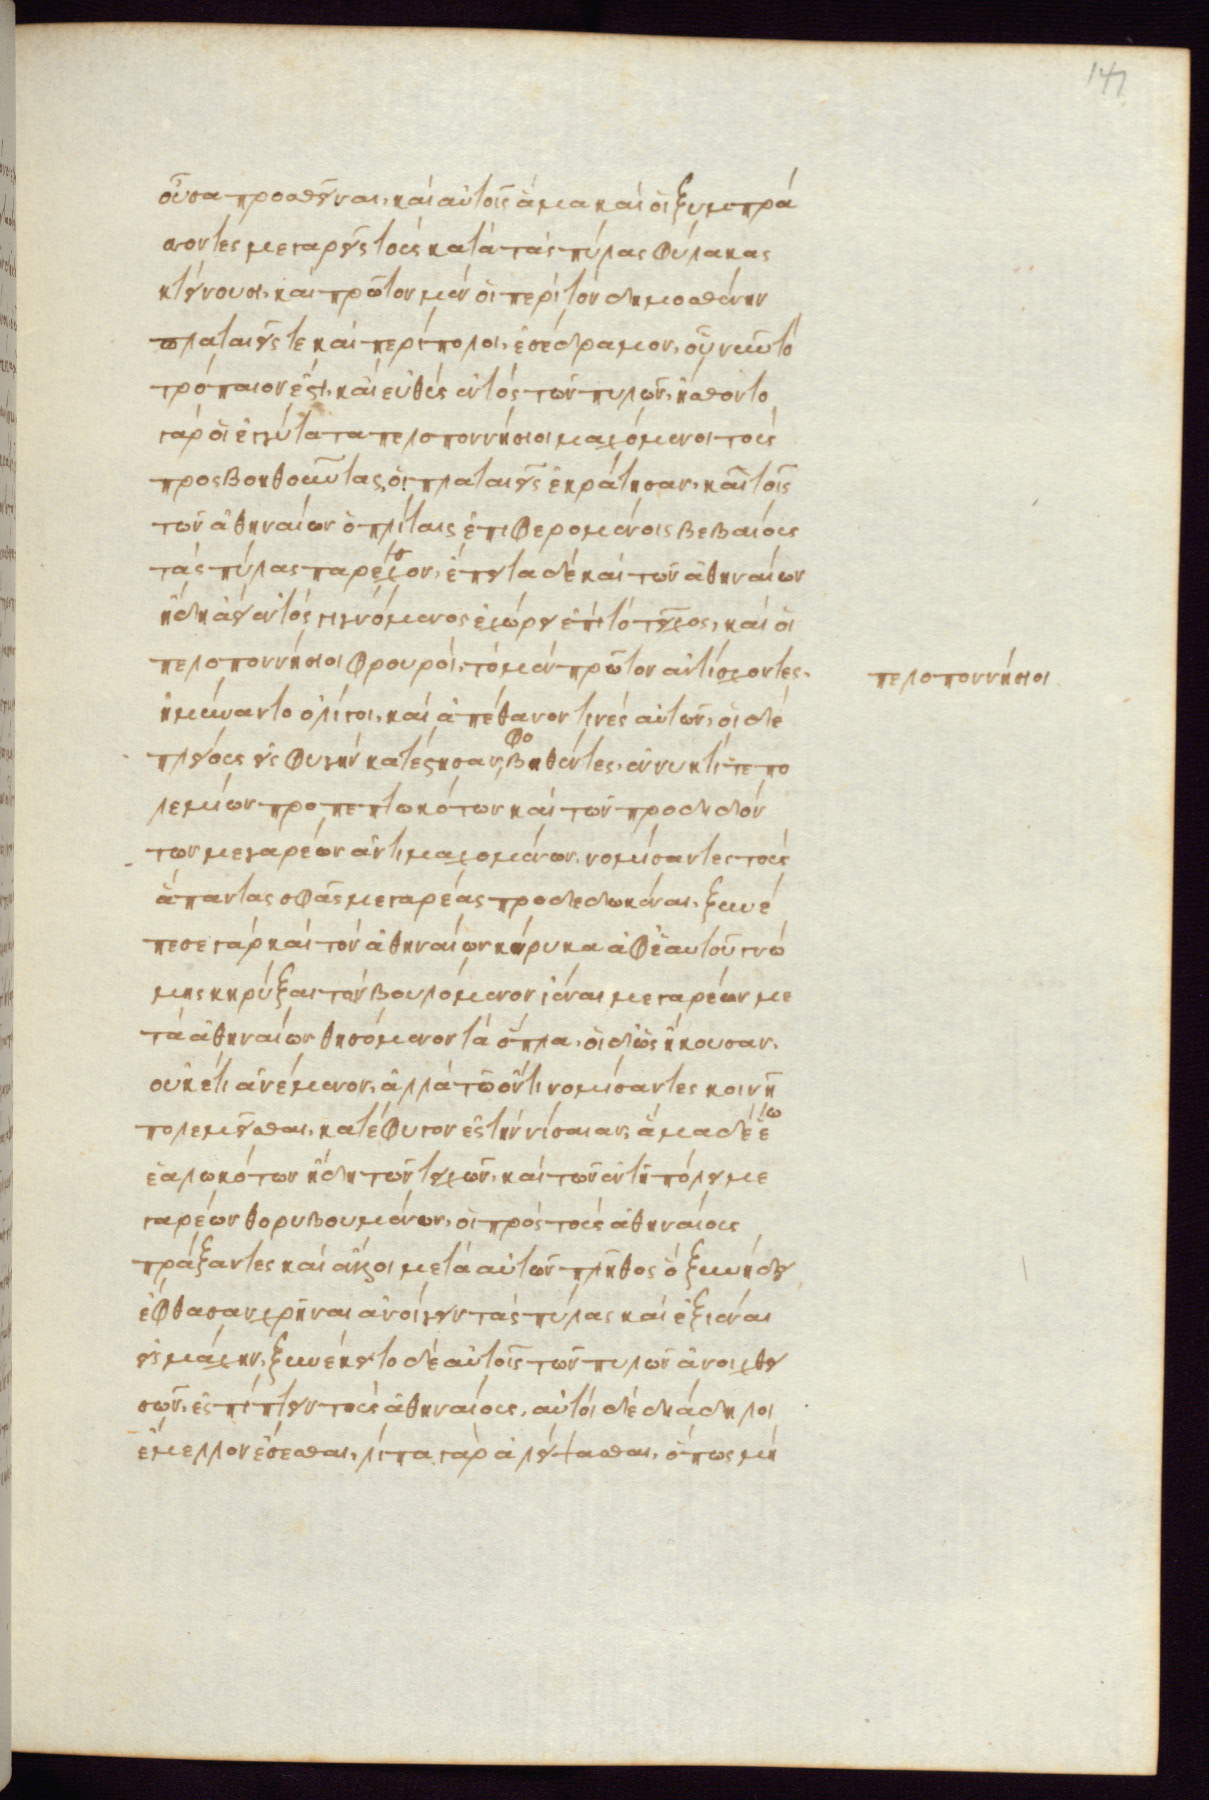 147
οὖσα προσθεῖναι, καὶ αὐτοῖς ἅμα καὶ οἱ ξυμπρά
σσοντες μεγαρεῖς τοὺς κατὰ τὰς πύλας φύλακας
κτείνουσι, καὶ πρῶτον μὲν οἱ περὶ τὸν δημοσθένην
πλαταιεῖς τε καὶ περίπολοι, ἐσέδραμον, οὗ νῦν τὸ
τρόπαιον ἐστι, καὶ εὐθὺς ἐντὸς τῶν πυλῶν, ἤσθοντο
γὰρ οἱ ἐγγύτατα πελοποννήσιοι μαχόμενοι τοὺς
προςβοηθοῦντας, οἱ πλαταιεῖς ἐκράτησαν, καὶ τοῖς
τῶν ἀθηναίων ὁπλίταις ἐπιφερομένοις βεβαίους
τὰς πύλας παρέσχον, ἔπειτα δὲ καὶ τῶν ἀθηναίων
ἤδη ἀεὶ ἐντὸς γιγνόμενος ἐχώρει ἐπὶ τὸ τεῖχος, καὶ οἱ
πελοποννήσιοι φρουροὶ, τὸ μὲν πρῶτον ἀντίσχοντες,
πελοποννήσιοι
ἠμύναντο ὀλίγοι, καὶ ἀπέθανον τινὲς αὐτῶν, οἱ δὲ
πλείους εἰς φυγὴν κατέστησαν, φοβηθέντες, ἐν νυκτί τε πο
λεμίων προσπεπτωκότων καὶ τῶν προδιδόν
των μεγαρέων ἀντιμαχομένων, νομίσαντες τοὺς
ἅπαντας σφᾶς μεγαρέας προδεδωκέναι, ξυνέ
πεσε γὰρ καὶ τὸν ἀθηναίων κήρυκα ἀφ' ἑαυτοῦ γνώ
μης κηρύξαι τὸν βουλόμενον ἰέναι μεγαρέων με
τὰ ἀθηναίων θησόμενον τὰ ὅπλα, οἱ δ' ὡς ἤκουσαν,
οὐκέτι ἀνέμενον, ἀλλὰ τῷ ὄντι νομίσαντες κοινῇ
πολεμεῖσθαι, κατέφυγον ἐς τὴν νίσαιαν, ἅμα δὲ ἕῳ
ἑαλωκότων ἤδη τῶν τειχῶν, καὶ τῶν ἐν τῇ πόλει με
γαρέων θορυβουμένων, οἱ πρὸς τοὺς ἀθηναίους
πράξαντες καὶ ἄλλοι μετὰ αὐτῶν πλῆθος ὃ ξυνήδει
ἔφθασαν χρῆναι ἀνοίγειν τὰς πύλας καὶ ἐξιέναι
εἰς μάχην, ξυνέκειτο δὲ αὐτοῖς τῶν πυλῶν ἀνοιχθει
σῶν, ἐςπίπτειν τοὺς ἀθηναίους, αὐτοὶ δὲ διάδηλοι
ἔμελλον ἔσεσθαι, λίπα γὰρ ἀλείψασθαι, ὅπως μὴ